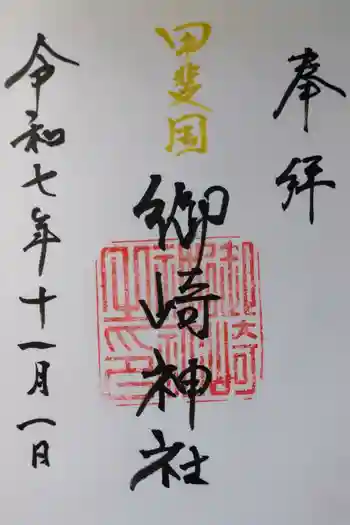 奉拝
甲斐国
御崎神社
御崎神社之印
令和七年十一月一日